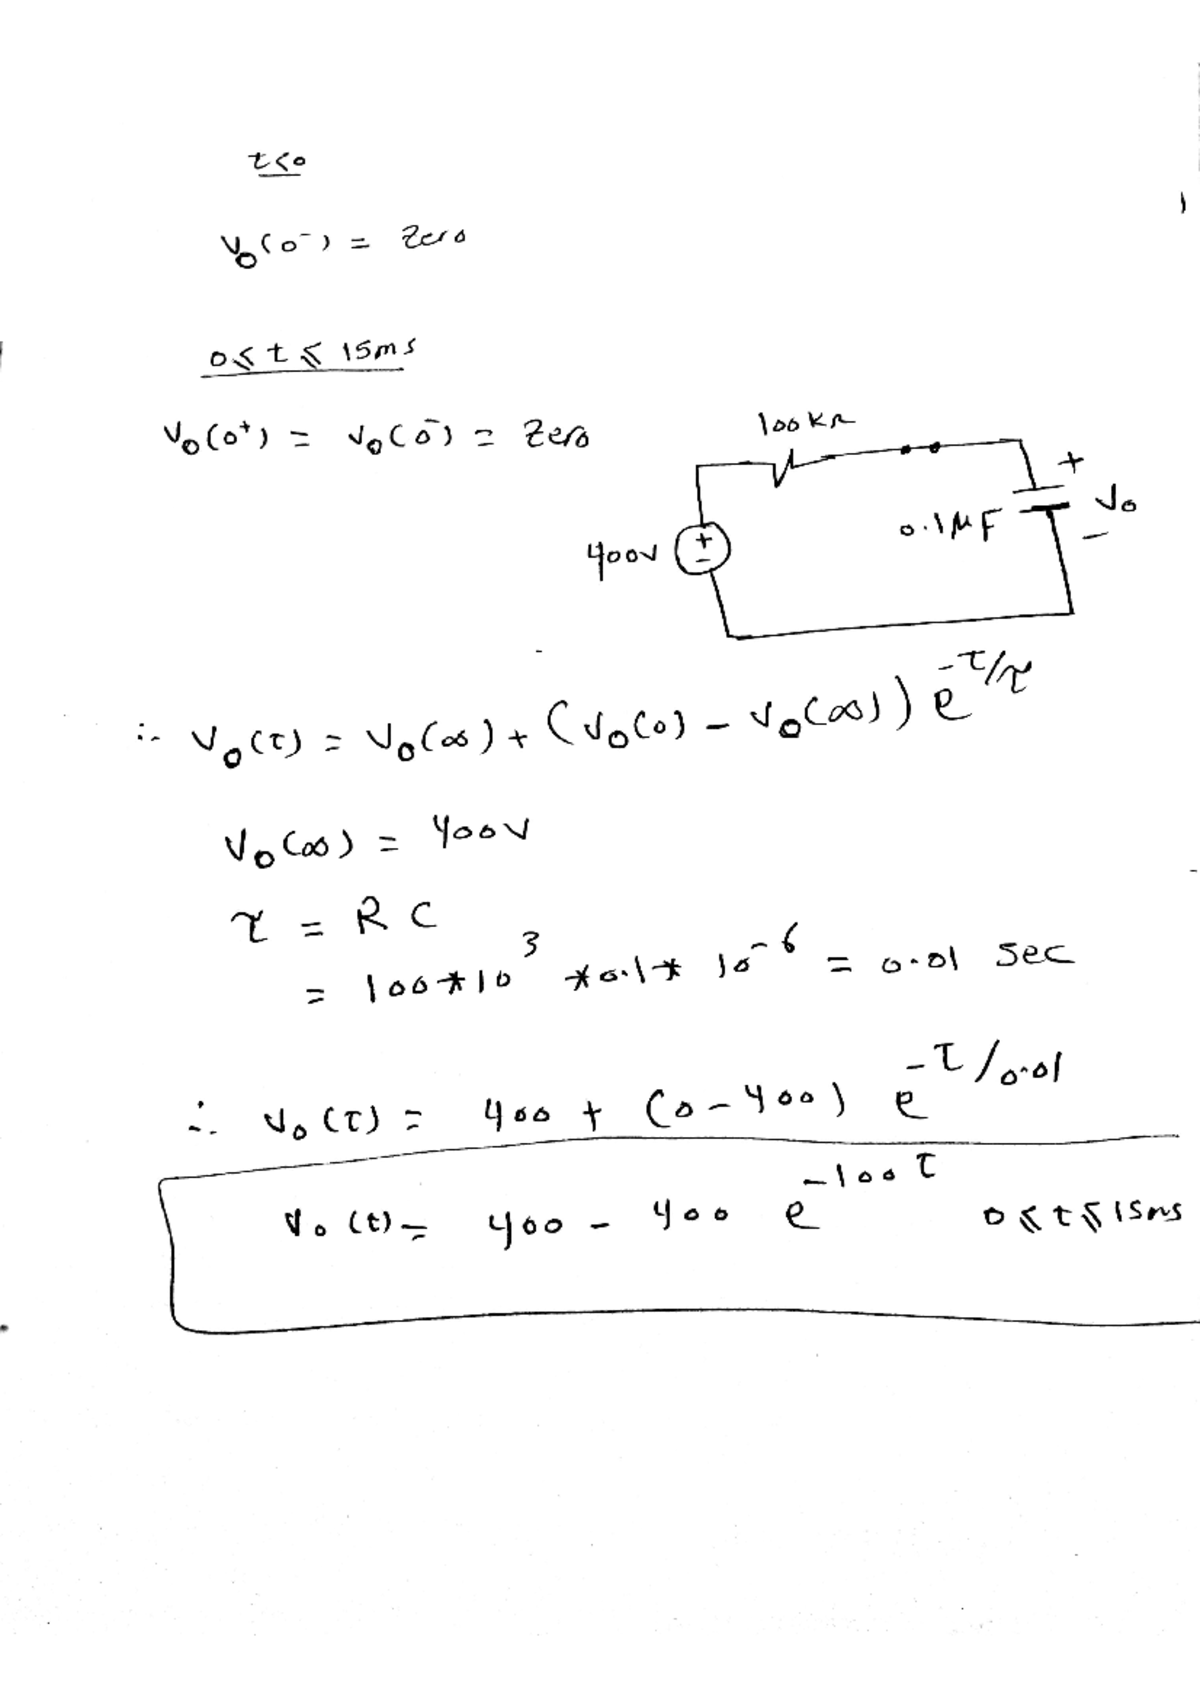 t<0
V₀(0⁻) = Zero
0⩽t⩽15ms
V₀(0⁺) = V₀(0⁻) = Zero
100kΩ
+
V₀
-
0.1μF
400V
+
-
∴ V₀(t) = V₀(∞) + (V₀(0) - V₀(∞)) e^-t/τ
V₀(∞) = 400V
τ = RC
= 100*10³ *0.1* 10⁻⁶ = 0.01 sec
∴ V₀(t) = 400 + (0-400) e^-t/0.01
V₀(t) = 400 - 400 e^-100t 0⩽t⩽15ms